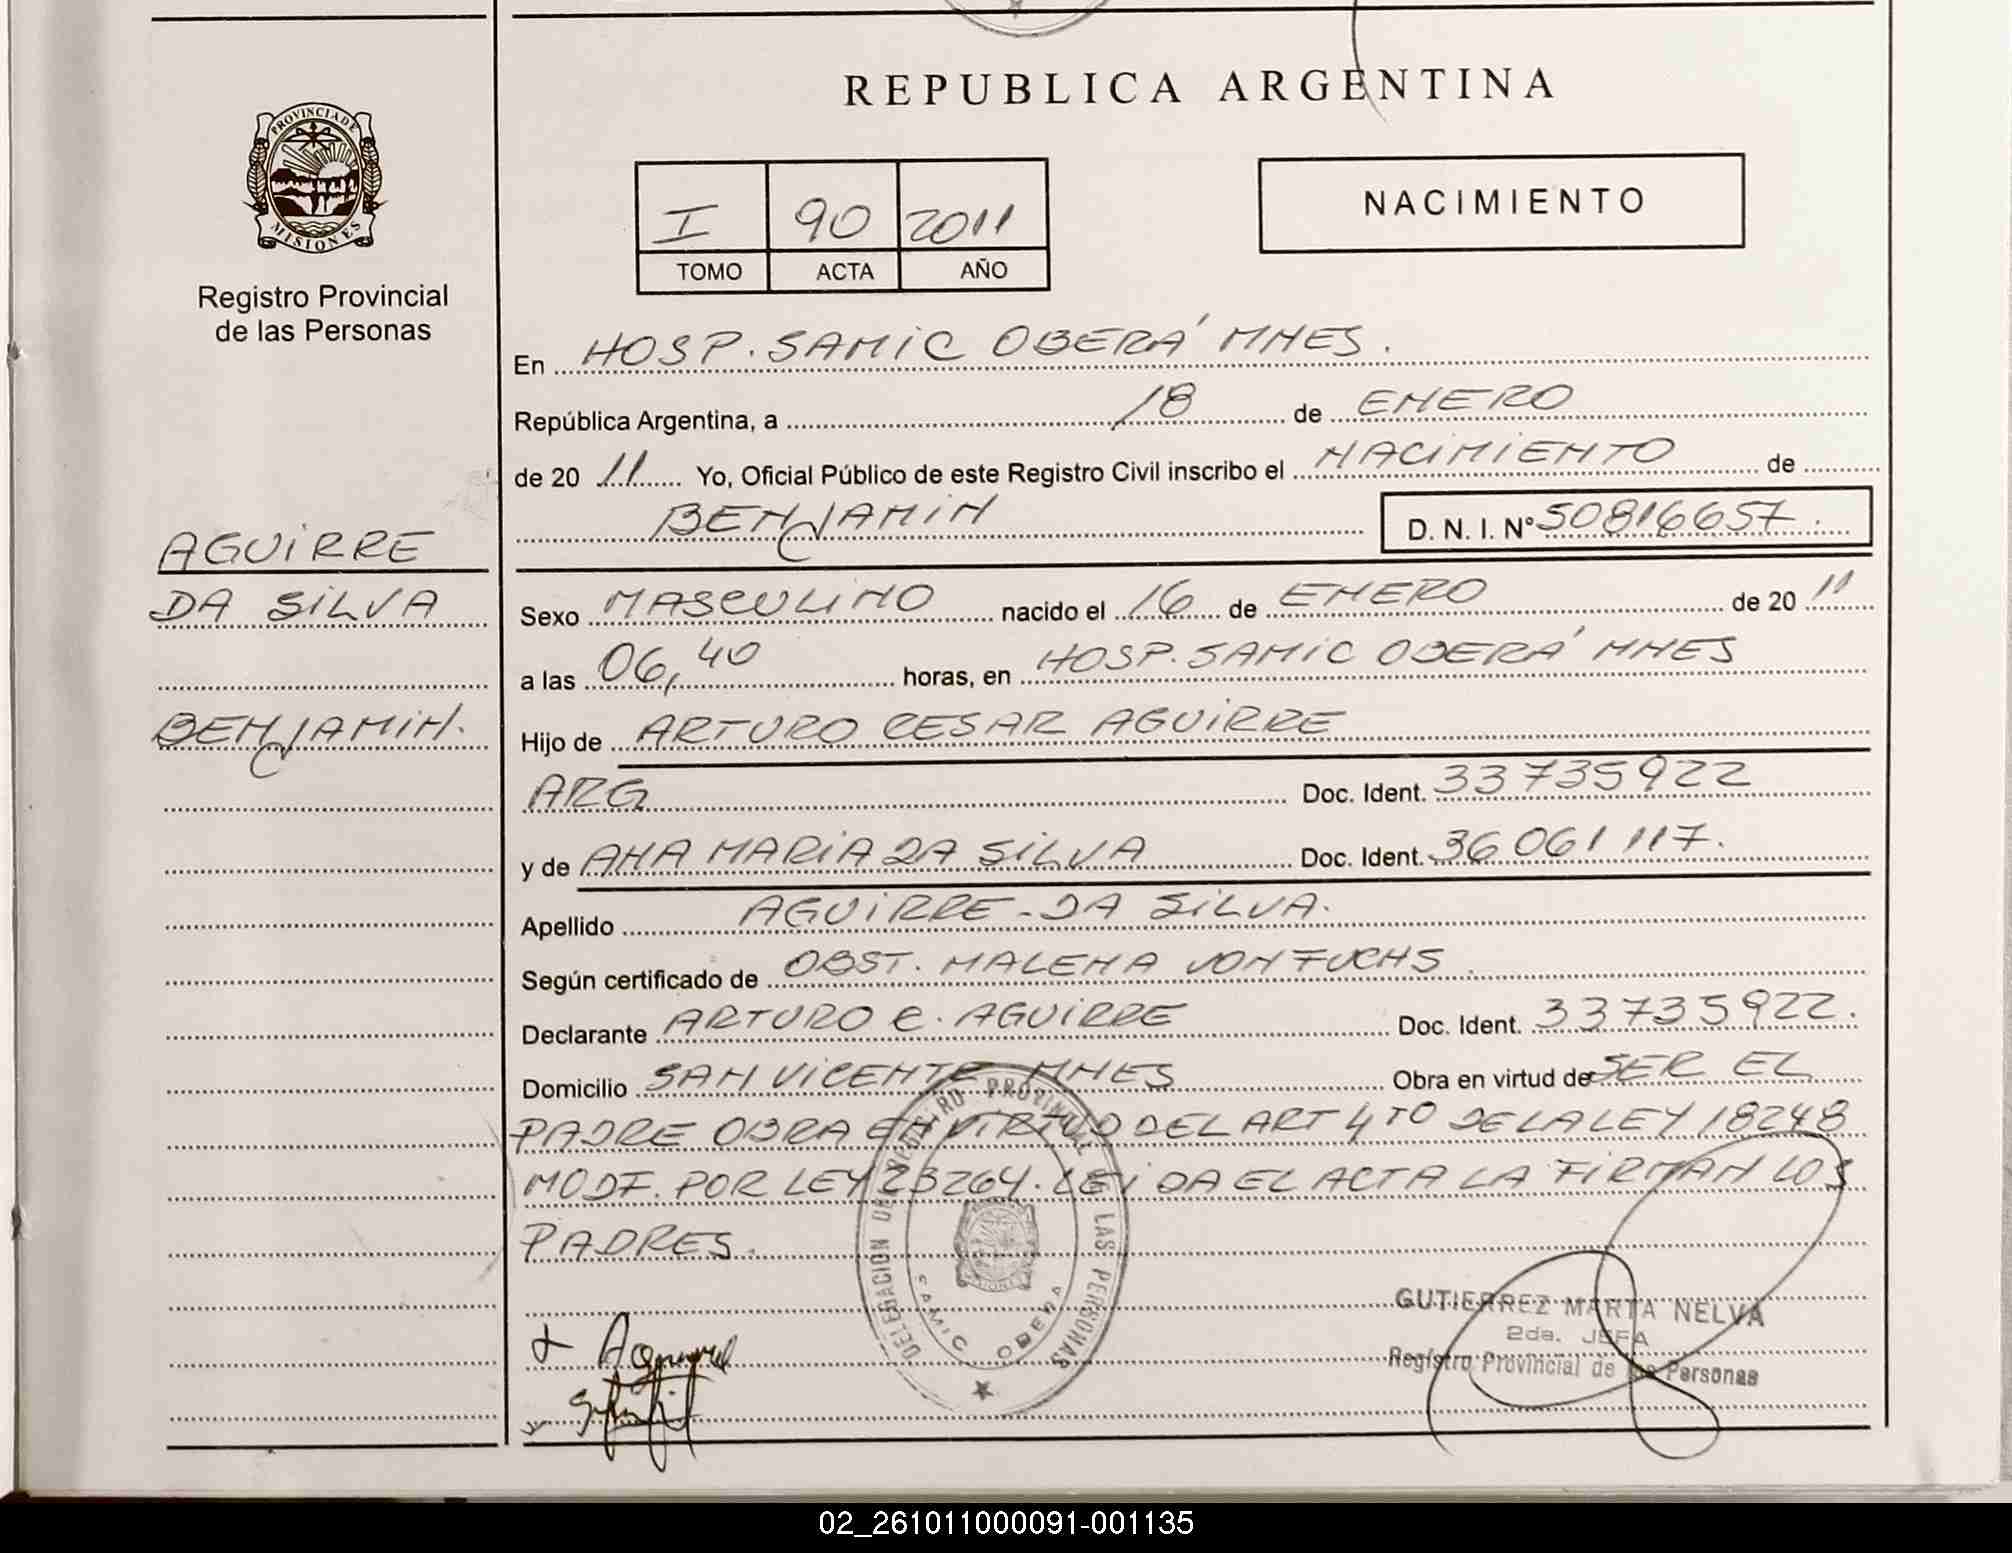 REPUBLICA ARGENTINA
PROVINCIA DE
MISIONES
Registro Provincial
de las Personas
I 90 2011
TOMO ACTA AÑO
NACIMIENTO
En HOSP. SAMIC OBERÁ MNES.
República Argentina, a 18 de ENERO
de 20 11 Yo, Oficial Público de este Registro Civil inscribo el NACIMIENTO de
BENJAMIN D. N. I. Nº 50816657.
AGUIRRE
DA SILVA
BENJAMIN.
Sexo MASCULINO nacido el 16 de ENERO de 20 11
a las 06,40 horas, en HOSP. SAMIC OBERÁ MNES
Hijo de ARTURO CESAR AGUIRRE
ARG Doc. Ident. 33735922
y de ANA MARIA DA SILVA Doc. Ident. 36061117.
Apellido AGUIRRE - DA SILVA.
Según certificado de OBST. MALENA VON FUCHS.
Declarante ARTURO C. AGUIRRE Doc. Ident. 33735922.
Domicilio SAN VICENTE MNES Obra en virtud de SER EL
PADRE OBRA EN VIRTUD DEL ART 4TO DE LA LEY 18248
MODF. POR LEY 23264. LEIDA EL ACTA LA FIRMAN LOS
PADRES.
DELEGACION DEL REGISTRO PROVINCIAL DE LAS PERSONAS
SAMIC OBERA
GUTIERREZ MARTA NELVA
2da. JEFA
Registro Provincial de las Personas
02_261011000091-001135